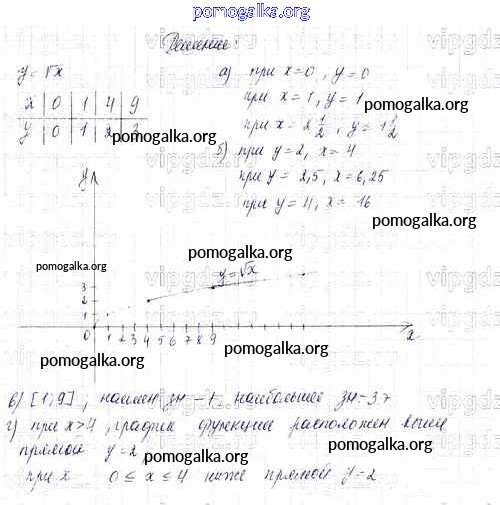 pomogalka.org
Решение:
y = √x
x 0 1 4 9
y 0 1 2 3
а) при x=0, y=0
при x=1, y=1
pomogalka.org
при x=2 1/2, y=1 1/2
pomogalka.org
б) при y=2, x=4
при y=2,5, x=6,25
при y=4, x=16
pomogalka.org
y
pomogalka.org
pomogalka.org
y=√x
3
2
1
0 1 2 3 4 5 6 7 8 9 x
pomogalka.org
pomogalka.org
в) [1;9]; наимен зн – 1, наибольшее зн=3
pomogalka.org
г) при x>4, график функции расположен выше
прямой y=2
pomogalka.org
при x 0 ≤ x ≤ 4 ниже прямой y=2